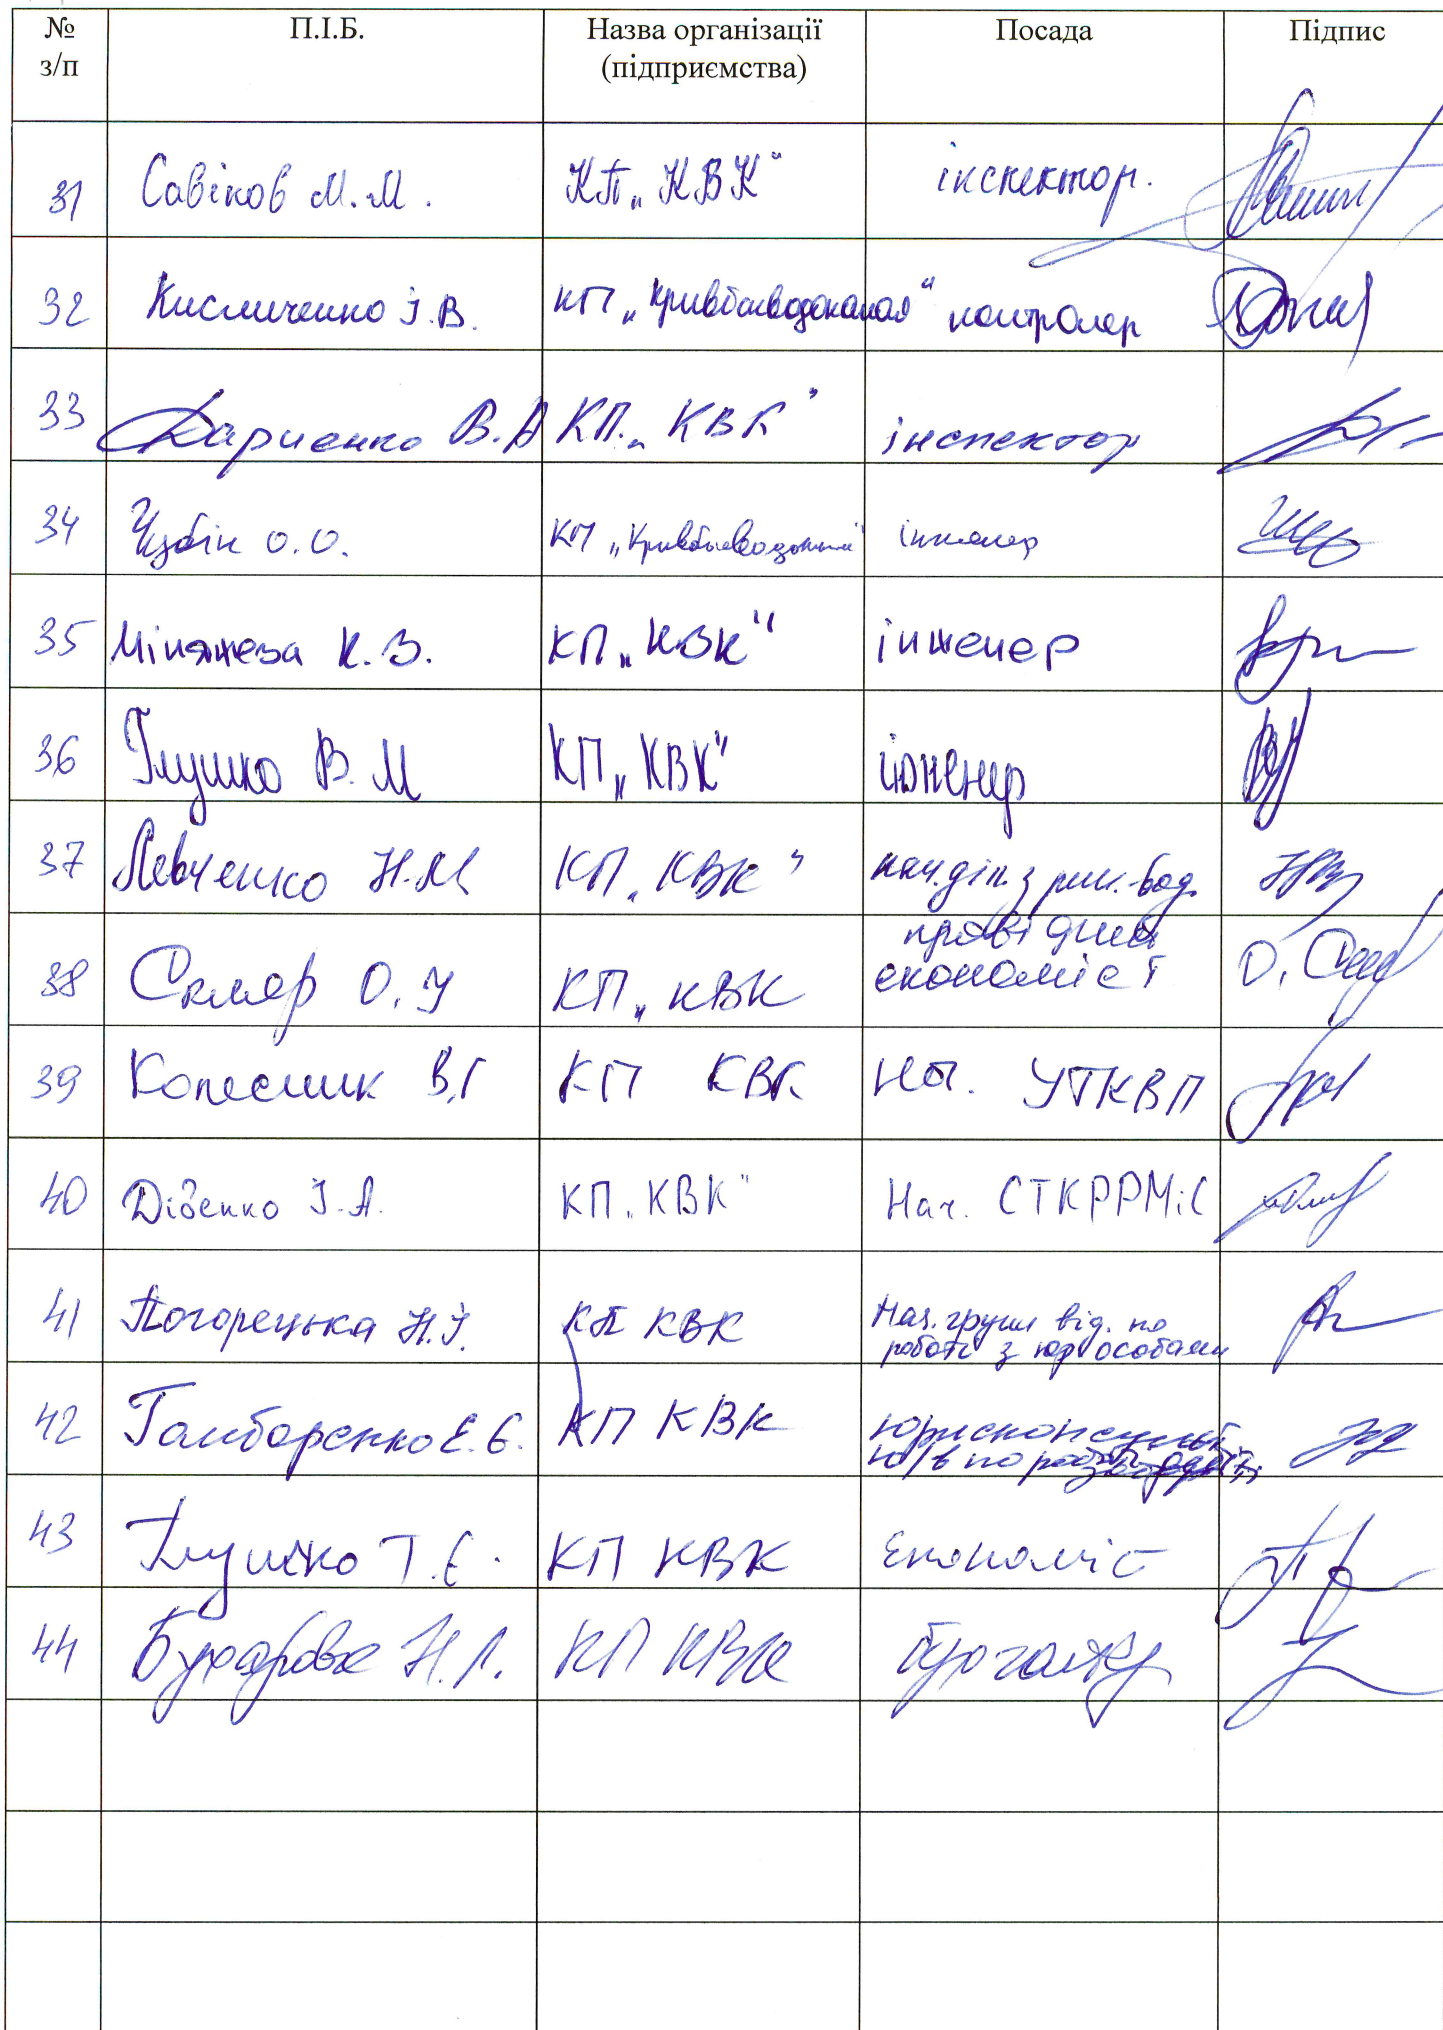 № з/п П.І.Б. Назва організації (підприємства) Посада Підпис
31 Савіков М.М. КП „КВК" інспектор.
32 Кисличенко І.В. КП „Кривбасводоканал" контролер
33 Дариенко В.А КП „КВК" інспектор
34 О.О. КП „Кривбасводоканал" інженер
35 К.В. КП „КВК" інженер
36 Глушко В.М КП „КВК" інженер
37 Левченко Н.М КП „КВК" нач. діл. з
38 Скляр О.У КП „КВК провідний економіст О.
39 Колесник В.Г КП КВК УТКВП
40 Діденко І.А. КП „КВК" Нач. СТКРРМіС
41 Погорецька Н.І. КП КВК Нач. групи від. по роботі з юр особами
42 Е.Є. КП КВК юрисконсульт ю/в по
43 Глушко Т.Є. КП КВК Економіст
44 Н.Л. КП КВК бухгалтер